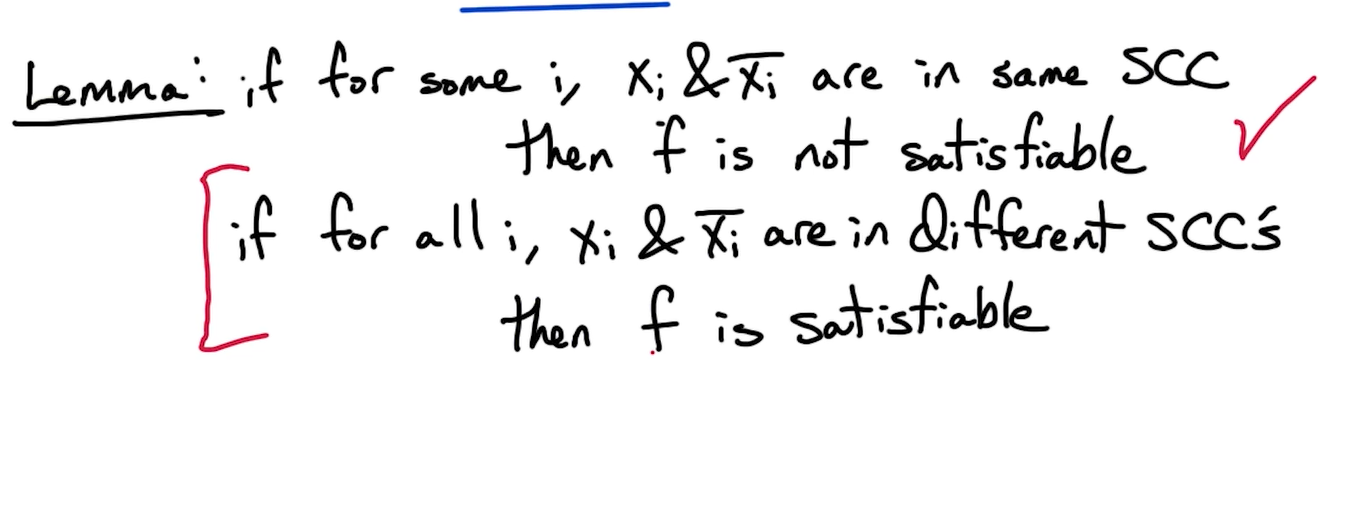 Lemma: if for some i, xᵢ & x̅ᵢ are in same SCC
then f is not satisfiable
if for all i, xᵢ & x̅ᵢ are in different SCC's
then f is satisfiable